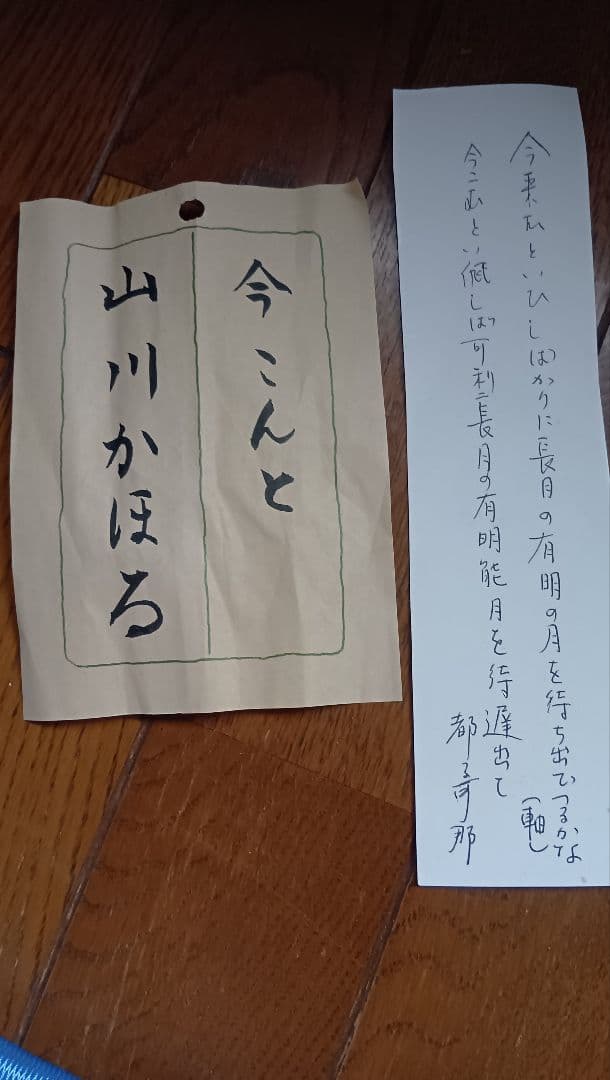 今来むといひしばかりに長月の有明の月を待ち出でつるかな
(軸)
今こむとい低しば可利二長月の有明能月を待遅出て
都る奇那
今こんと
山川かほる